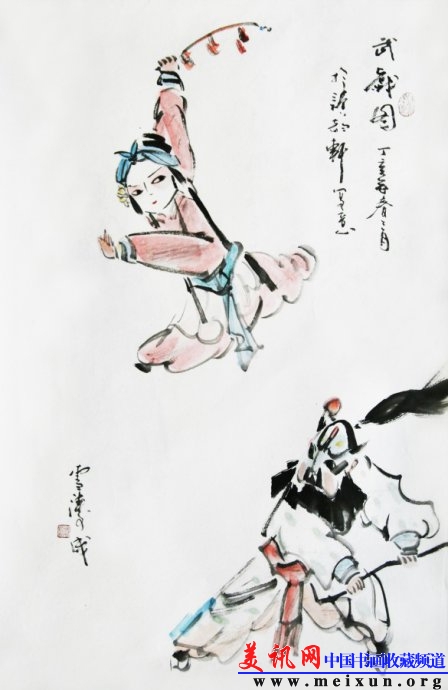 武戲图
丁亥年春二月
於 軒写意
雪濤 成
美讯网 中国书画收藏频道
www.meixun.org